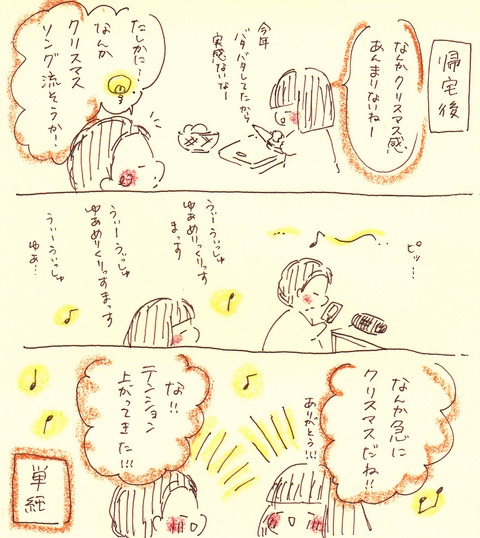 帰宅後
なんかクリスマス感
あんまりないねー
今年
バタバタしてたから
実感ないなー
たしかに…
なんか
クリスマス
ソング流そうか…
ピッ…
うぃーうぃっしゅ
ゆあめりくりっす
まっす
うぃーうぃっしゅ
ゆあめりくりっすまっす
うぃーうぃっしゅ
ゆあ…
なんか急に
クリスマスだね!!
ありがとう!!!
な!!
テンション
上がってきた!!!
単純